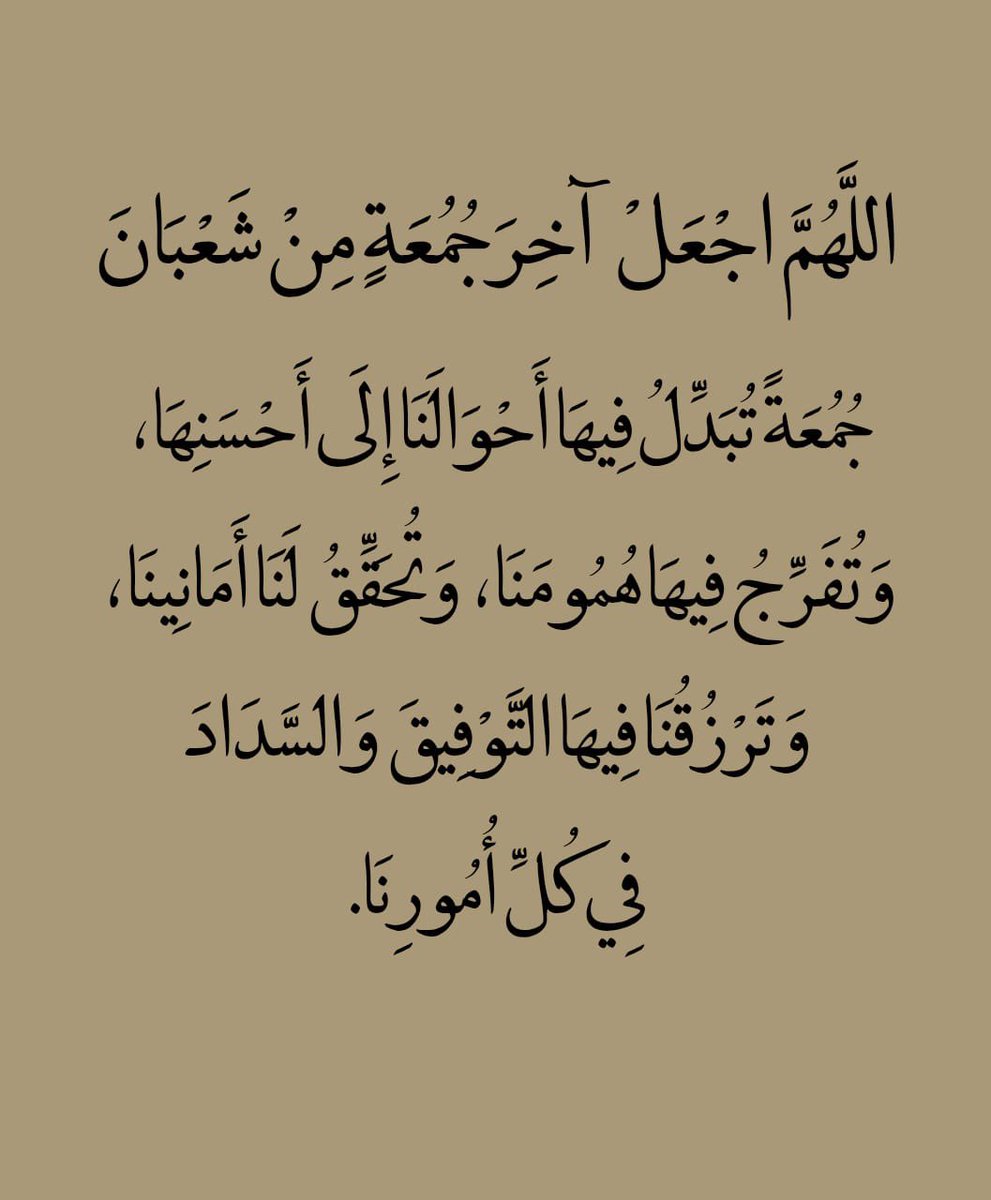 اللَّهُمَّ اجْعَلْ آخِرَ جُمُعَةٍ مِنْ شَعْبَانَ
جُمُعَةً تُبَدِّلُ فِيهَا أَحْوَالَنَا إِلَى أَحْسَنِهَا،
وَتُفَرِّجُ فِيهَا هُمُومَنَا، وَتُحَقِّقُ لَنَا أَمَانِينَا،
وَتَرْزُقُنَا فِيهَا التَّوْفِيقَ وَالسَّدَادَ
فِي كُلِّ أُمُورِنَا.